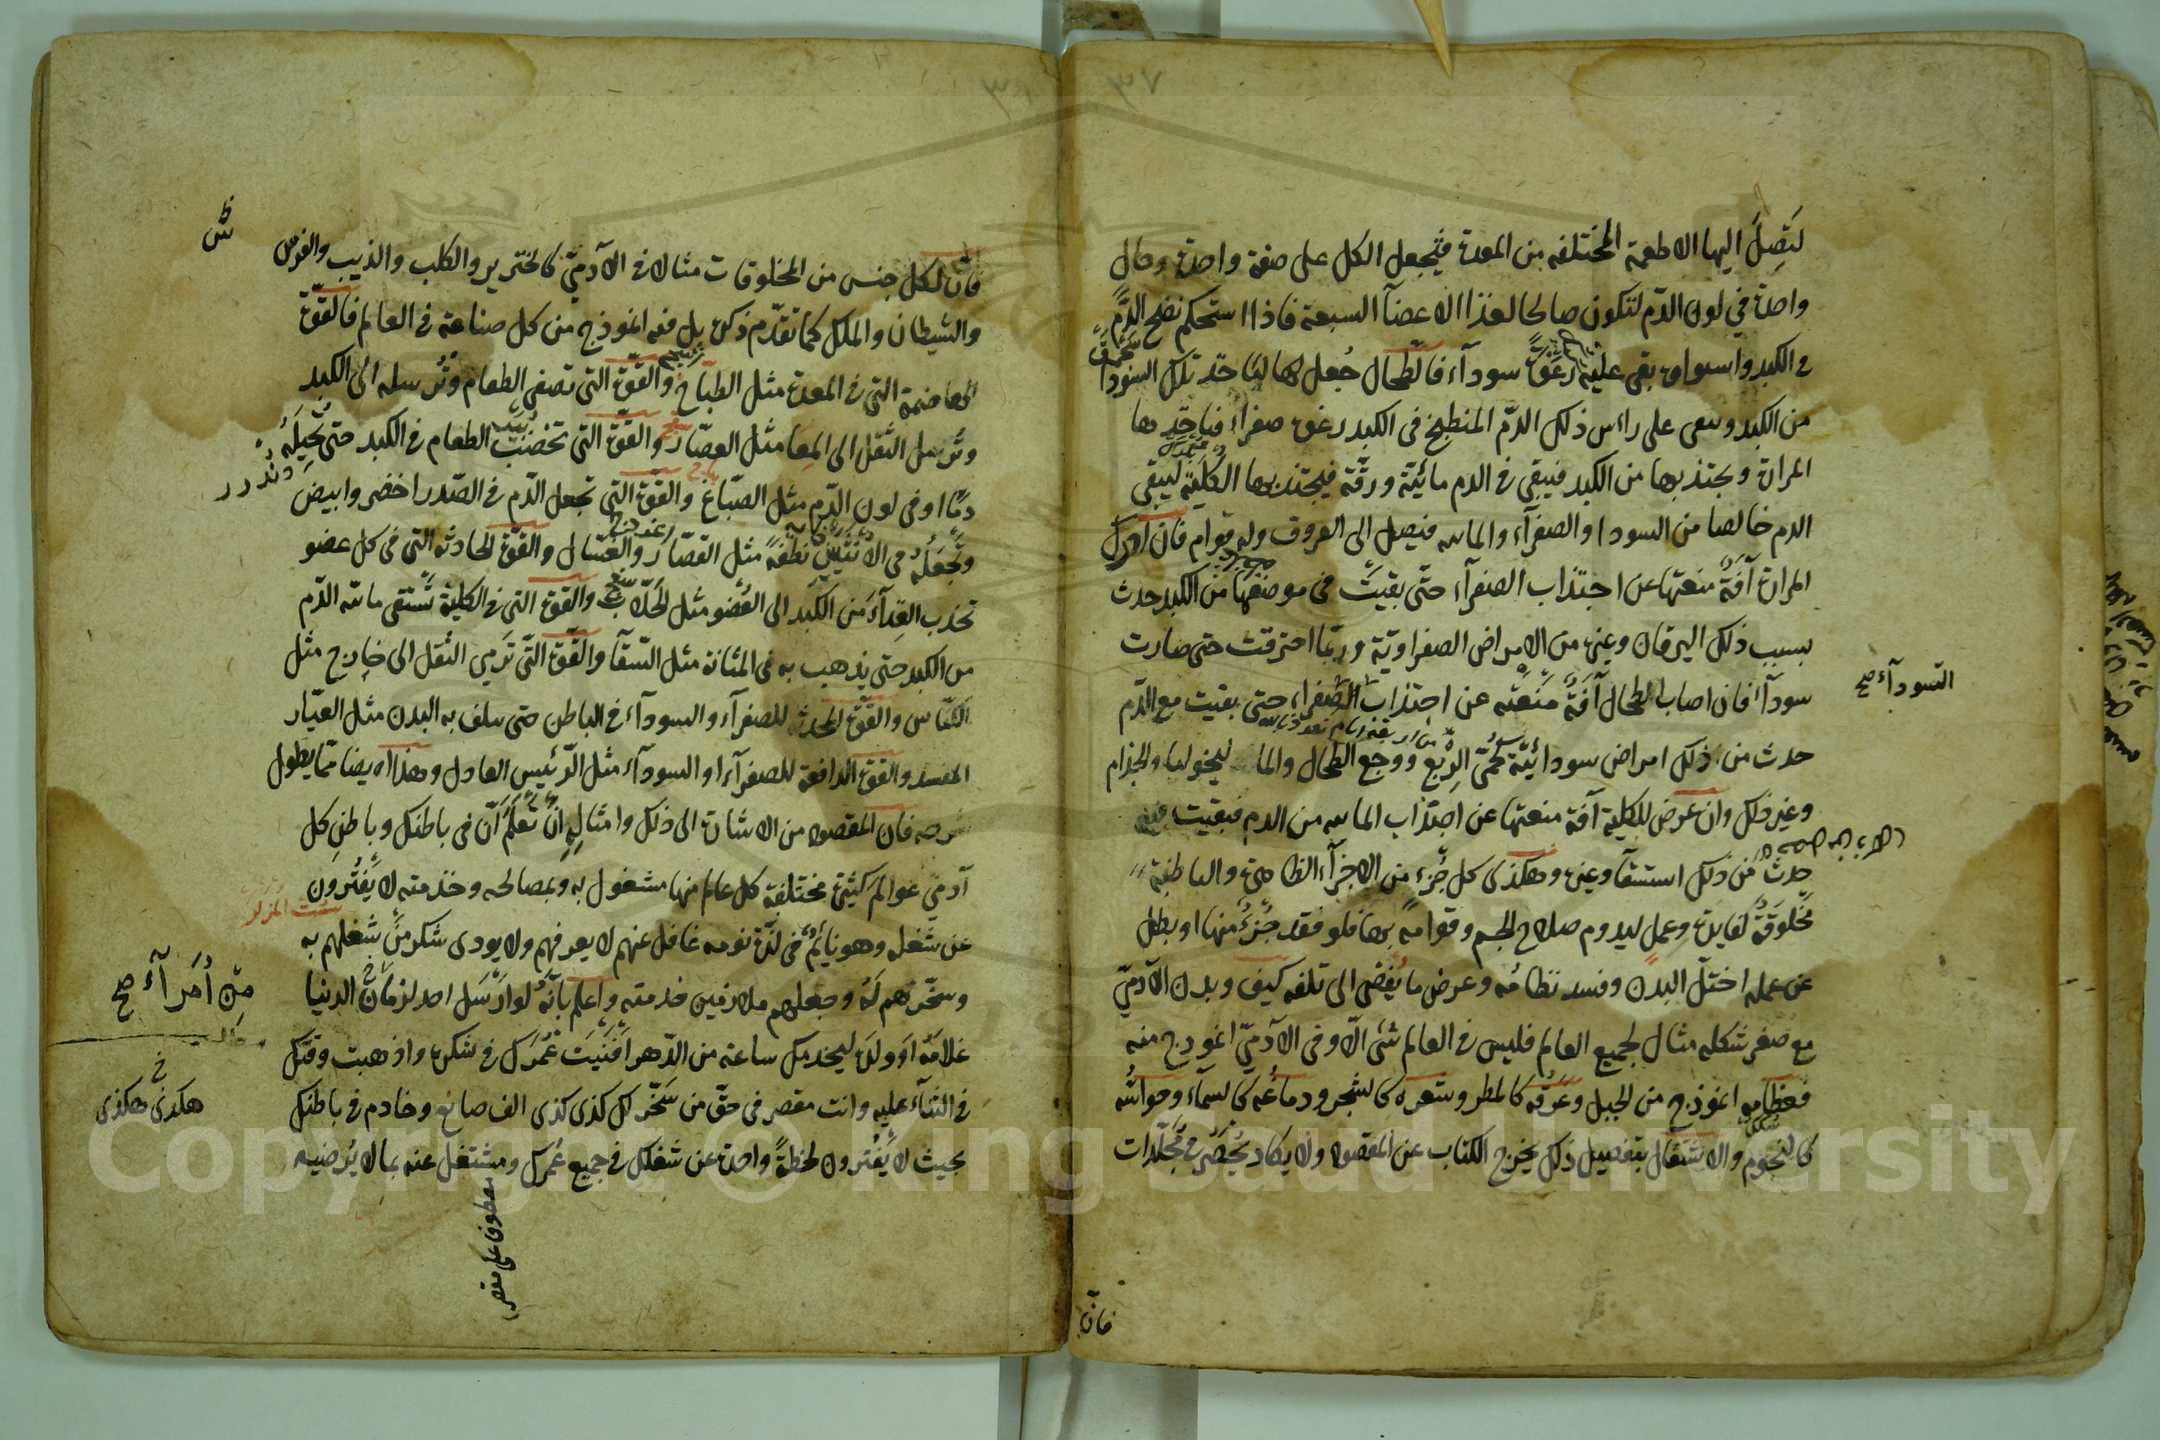 لتصل اليها الاطعمة المختلفة من المعدة فيجعل الكل على صفة واحدة وحال
واحدة في لون الدم لتكون صالحا لغذا الاعضآ السبعة فاذا استحكم نضج الدم
في الكبد واستوى بقي عليه رغوة سودآء فالطحال جعل لها لتاخذ تلك السودا
من الكبد ويبقى على راس ذلك الدم المنطبخ في الكبد رغوة صفراء فياخذها
المرارة ويجتذبها من الكبد فيبقى في الدم مائية ورقة فيجتذبها الكلية ليبقى
الدم خالصا من السودا والصفرآء والمائية فيصل الى العروق وله قوام فان ادرك
المرارة آفة منعتها عن اجتذاب الصفرآء حتى بقيت في موضعها من الكبد حدث
بسبب ذلك اليرقان وغيره من الامراض الصفراوية وربما احترقت حتى صارت
سودآء فان اصاب الطحال آفة منعته عن اجتذاب الصفراء حتى بقيت مع الدم
السودآء صح
حدث من ذلك امراض سودائية كحمى الربع ووجع الطحال والماليخوليا والجذام
وغير ذلك وان عرض للكلية آفة منعتها عن اجتذاب المائية من الدم فبقيت فيه
حدث من ذلك استسقآ وغيره وهكذى كل جزء من الاجزآء الظاهرة والباطنة
مخلوقة لفايدة وعمل ليدوم صلاح الجسم وقوامه بها فلو فقد جزء منها او بطل
عن عمله اختل البدن وفسد نظامه وعرض ما يفضى الى تلفه كيف وبدن الآدمي
مع صغر شكله مثال لجميع العالم فليس في العالم شئ الا وفى الآدمي انموذج منه
فعظامه انموذج من الجبل وعرقه كالمطر وشعره كالشجر ودماغه كالسمآء وحواسه
كالنجوم والاشتغال بتفصيل ذلك يخرج الكتاب عن المقصود ولا يكاد يحصر في مجلدات
فان
فان لكل جنس من المخلوقات مثالا في الآدمي كالخنزير والكلب والذيب والفرس
والشيطان والملك كما تقدم ذكره بل فيه انموذج من كل صناعة في العالم فالقوة
الهاضمة التي في المعدة مثل الطباخ والقوة التي تصفى الطعام وترسله الى الكبد
وترسل الثفل الى المعا مثل العصار والقوة التي تخضب الطعام في الكبد حتى تحيله
دما او في لون الدم مثل الصباغ والقوة التي تجعل الدم في الصدر اخضر وابيض
وتجعله في الانثيين نطفة مثل القصار والغسال والقوة الحادثة التي في كل عضو
تجذب الغذآء من الكبد الى العضو مثل الجلاب والقوة التي في الكلية تستقى مائية الدم
من الكبد حتى يذهب به في المثانة مثل السقآ والقوة التي ترمي الثفل الى خارج مثل
الكناس والقوة المحدثة للصفرآء والسودآء في الباطن حتى يتلف به البدن مثل العيار
المفسد والقوة الدافعة للصفرآء او السودآء مثل الرئيس العادل وهذا ايضا مما يطول
شرحه فان المقصود من الاشارة الى ذلك وامثاله ان تعلم ان في باطنك وباطن كل
آدمي عوالم كثيرة مختلفة كل عالم منها مشغول به وبمصالحه وخدمته لا يفترون
عن شغله وهو نايم في لذة نومه غافل عنهم لا يعرفهم ولا يودى شكر من شغلهم به
وسخرهم له وجعلهم ملازمين خدمته واعلم بانه لو ارسل احد لزمان الدنيا
من أمرآء صح
غلامه او ولده ليخدمك ساعة من الدهر افنيت عمرك في شكره واذهبت وقتك
في الثنآء عليه وانت مقصر في حق من سخر لك كذى كذى الف صانع وخادم في باطنك
هكذى هكذى
بحيث لا يفترون لحظة واحدة عن شغلك في جميع عمرك ومشتغل عنه بما لا يرضيه
معطوف على مقصر
Copyright © King Saud University